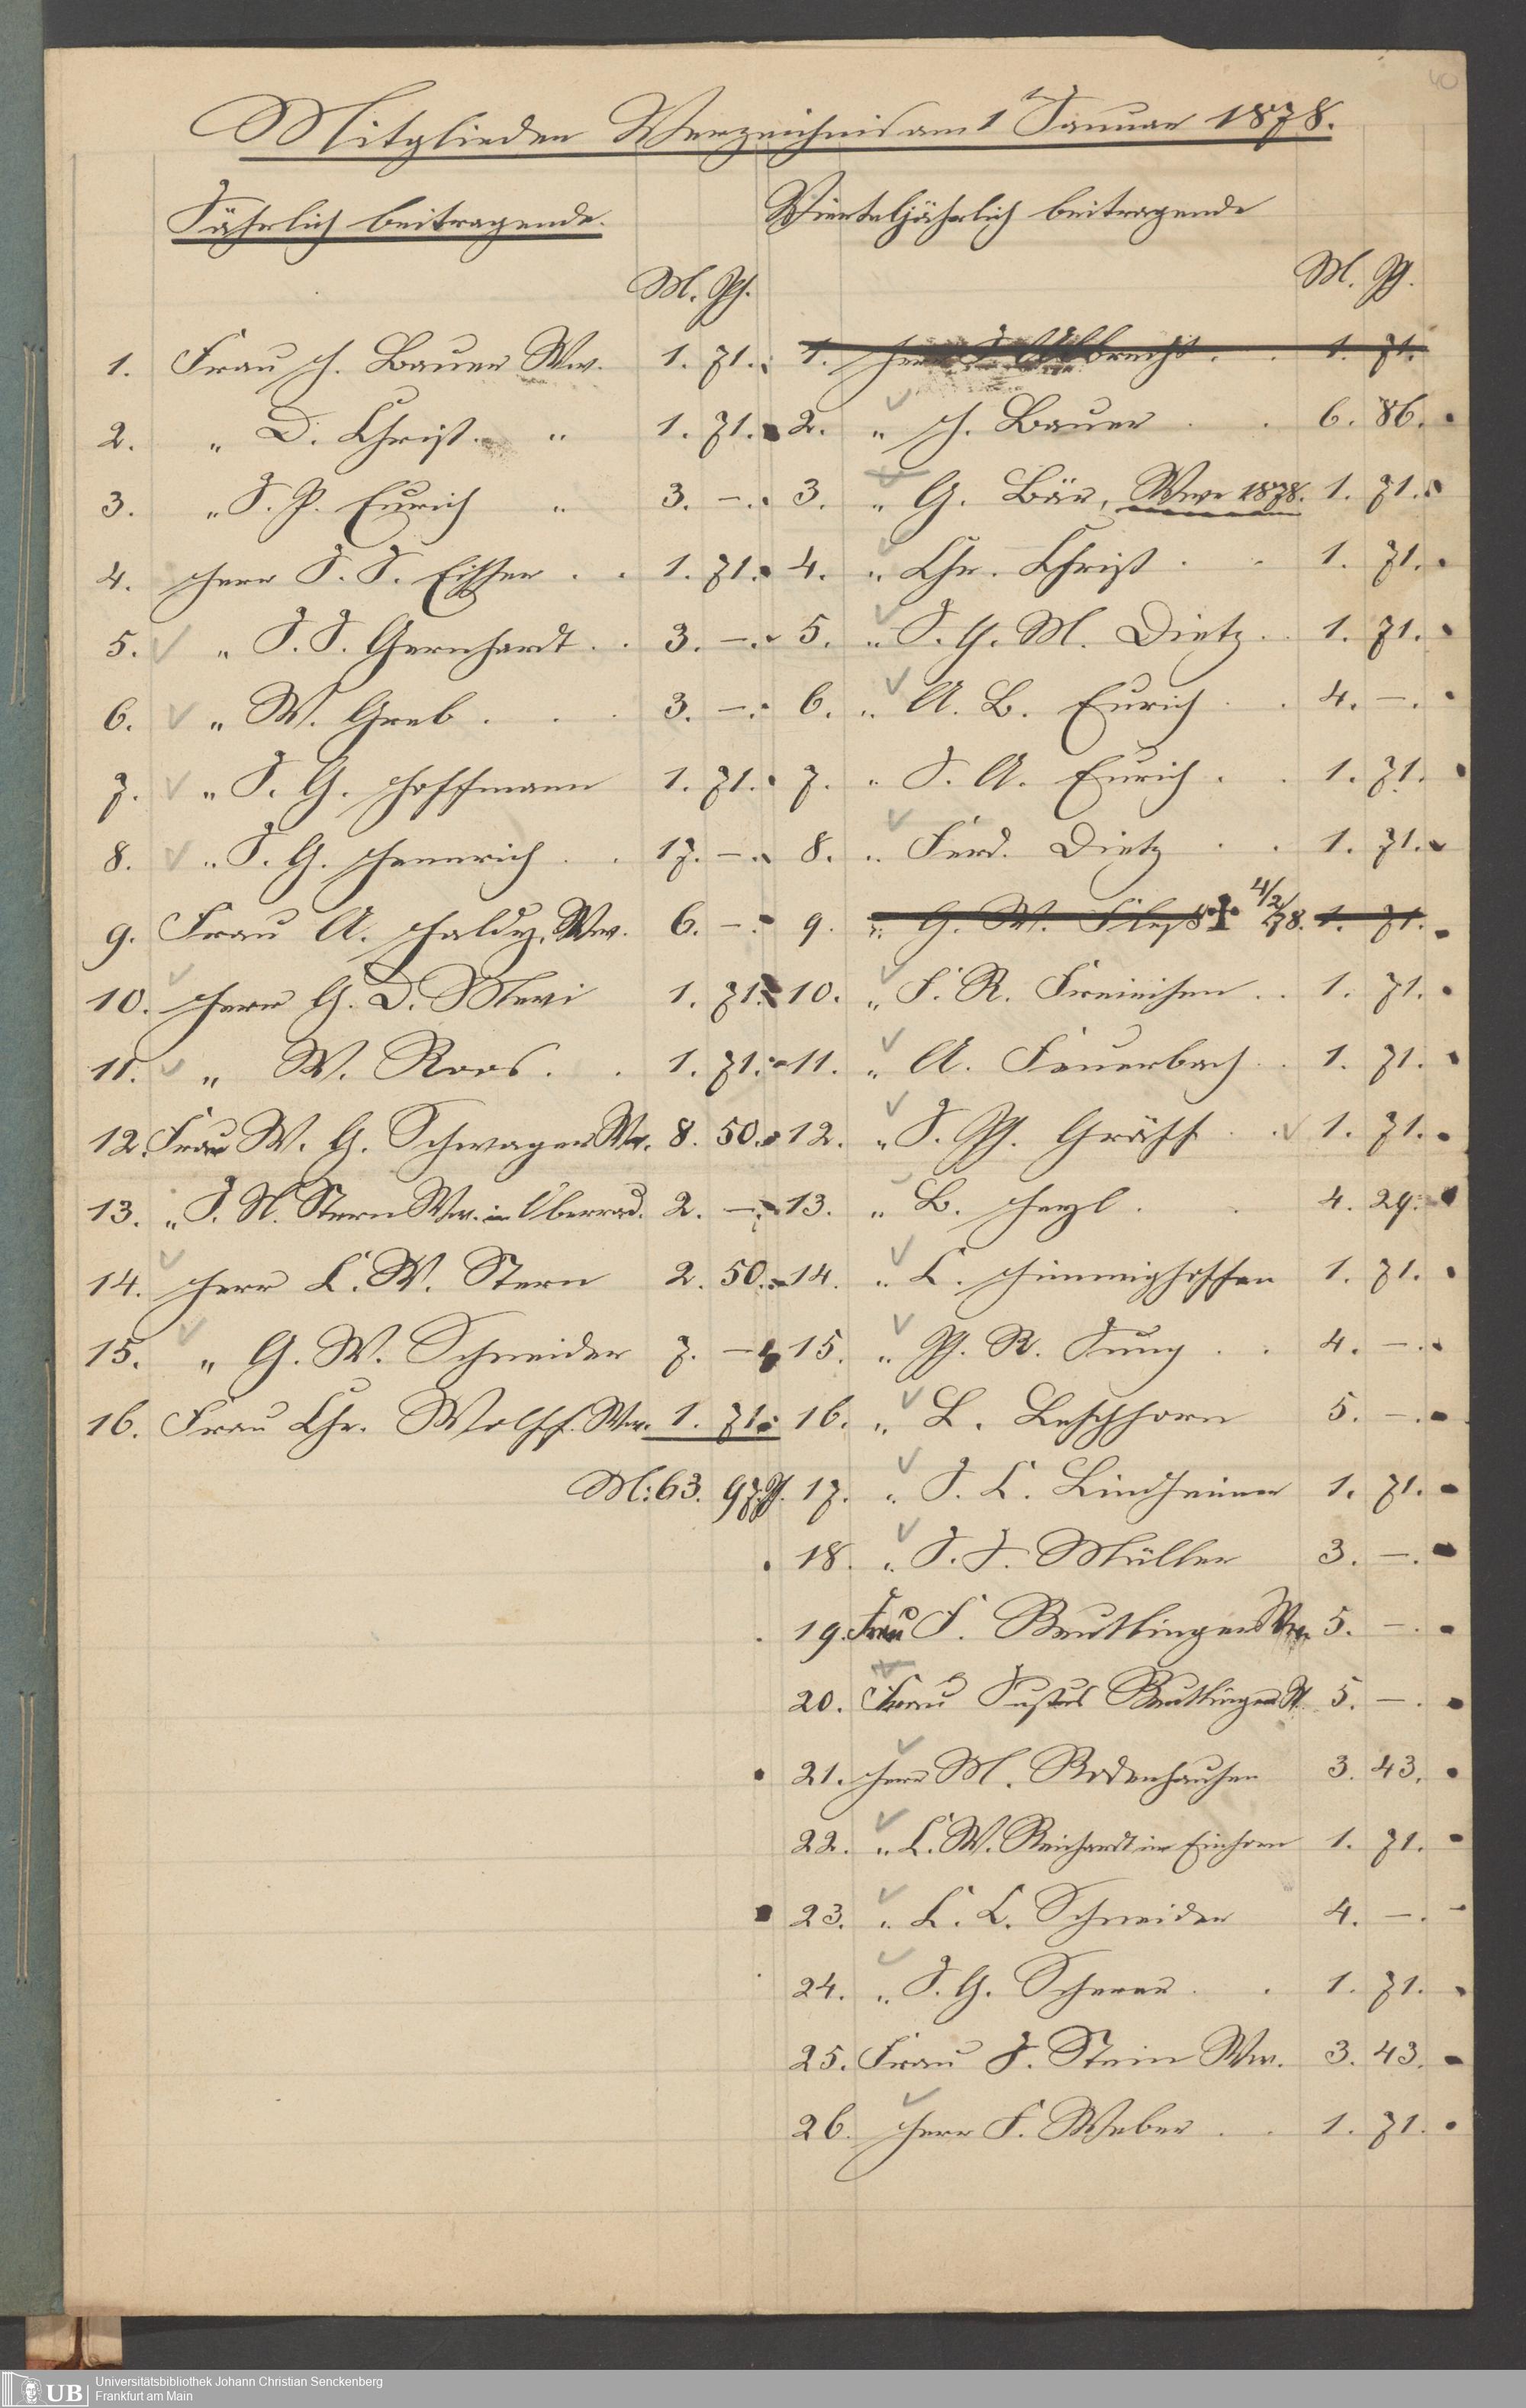 40
Mitglieder Verzeichnis am 1ten Januar 1878.
Jährlich beitragende.
M. Pf.
1. Frau H. Bauer Ww. 1. 71.
2. " D. Christ " 1. 71.
3. " J. P. Eurich " 3. —.
4. Herr J. J. Eissen . . 1. 71.
5. " J. J. Gernhardt . . 3. —.
6. " W. Greb . . . 3. —.
7. " J. G. Hoffmann 1. 71.
8. " J. G. Hennrich . . 17. —.
9. Frau A. Haldy, Ww. 6. —.
10. Herr G. D. Mevi 1. 71.
11. " W. Roos . . 1. 71.
12. Frau W. G. Schwager Ww. 8. 50.
13. " J. N. Stern Ww. in Oberrad. 2. —.
14. Herr L. W. Stern 2. 50.
15. " G. W. Schneider 7. —
16. Frau Chr. Wolff Ww. 1. 71.
M: 63. 97 Pf.
Vierteljährlich beitragende
M. Pf.
1. Herr J. Albrecht . . 1. 71.
2. " H. Bauer . . 6. 86.
3. " G. Bär, Wwe 1878. 1. 71.
4. " Chr. Christ . . 1. 71.
5. " J. G. M. Dietz . . 1. 71.
6. " A. B. Eurich . . 4. —.
7. " J. A. Eurich . . 1. 71.
8. " Ferd. Dietz . . 1. 71.
9. " G. W. Fleß † 4/2/78. 1. 71.
10. " F. R. Freieisen . . 1. 71.
11. " A. Feuerbach . . 1. 71.
12. " J. Ph. Gräff . . 1. 71.
13. " B. Heyl . . 4. 29.
14. " C. Himmighoffen 1. 71.
15. " Ph. R. Jung . . 4. —.
16. " L. Leschhorn 5. —.
17. " J. C. Lindheimer 1. 71.
18. " J. J. Müller 3. —.
19. Frau F. Reutlinger Ww. 5. —.
20. Frau Justus Reutlinger 5. —.
21. Herr M. Rodenhausen 3. 43.
22. " C. W. Reinhardt im Einhorn 1. 71.
23. " L. C. Schneider 4. —.
24. " J. G. Scherer . . 1. 71.
25. Frau J. Stein Ww. 3. 43.
26. Herr F. Weber . . 1. 71.
UB
Universitätsbibliothek Johann Christian Senckenberg
Frankfurt am Main